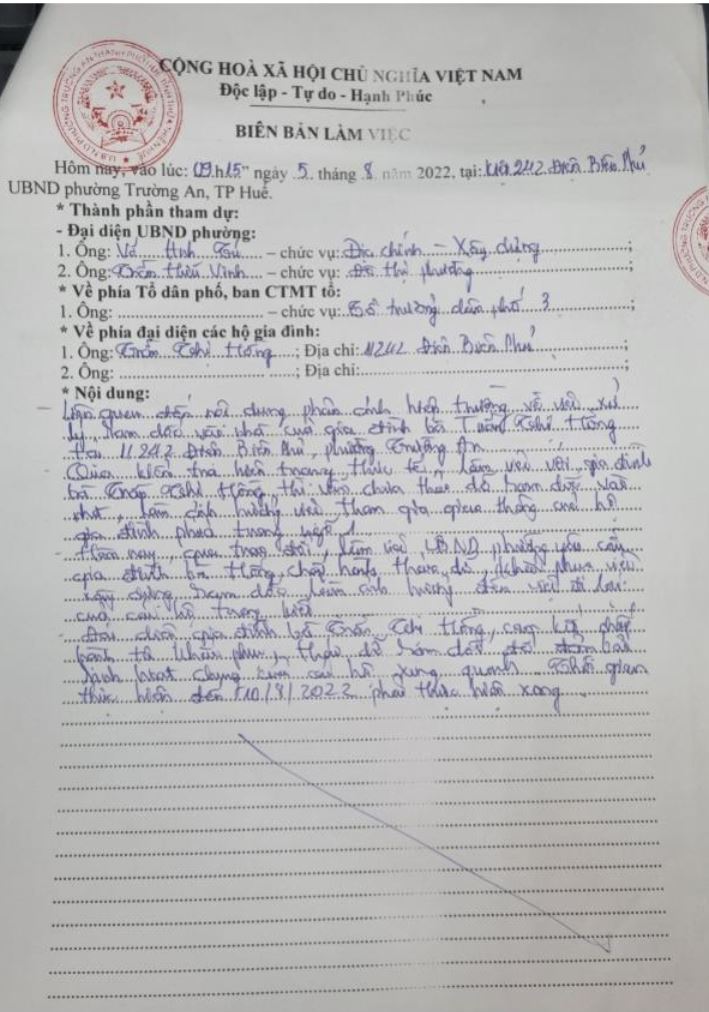 CỘNG HOÀ XÃ HỘI CHỦ NGHĨA VIỆT NAM
Độc lập - Tự do - Hạnh Phúc
BIÊN BẢN LÀM VIỆC
Hôm nay, vào lúc: 09.h15" ngày 5 tháng 8 năm 2022, tại: kiệt 242 Điện Biên Phủ
UBND phường Trường An, TP Huế.
* Thành phần tham dự:
- Đại diện UBND phường:
1. Ông: Võ – chức vụ: Địa chính – Xây dựng;
2. Ông: Trần Vinh – chức vụ: Đô thị phường;
* Về phía Tổ dân phố, ban CTMT tổ:
1. Ông: – chức vụ: Tổ trưởng dân phố 3;
* Về phía đại diện các hộ gia đình:
1. Ông: Trần Thị Hồng; Địa chỉ: 11/242 Điện Biên Phủ;
2. Ông: ; Địa chỉ: ;
* Nội dung:
- Liên quan đến nội dung phản ánh hiện trường về việc xử
lý ram dốc của gia đình bà Trần Thị Hồng
tại 11/242 Điện Biên Phủ, phường Trường An
Qua kiểm tra hiện trạng thực tế, làm việc với gia đình
bà Trần Thị Hồng, thì vẫn chưa tháo dỡ ram dốc
, làm ảnh hưởng việc tham gia giao thông của hộ
gia đình phía trong kiệt.
- Hôm nay, qua trao đổi, làm việc UBND phường yêu cầu
gia đình bà Hồng, chấp hành tháo dỡ, khắc phục việc
xây dựng ram dốc làm ảnh hưởng đến việc đi lại
của các hộ trong kiệt.
Đại diện gia đình bà Trần Thị Hồng, cam kết chấp
hành khắc phục, tháo dỡ ram dốc để đảm bảo
sinh hoạt chung của các hộ xung quanh. Thời gian
thực hiện đến 10/8/2022 phải thực hiện xong